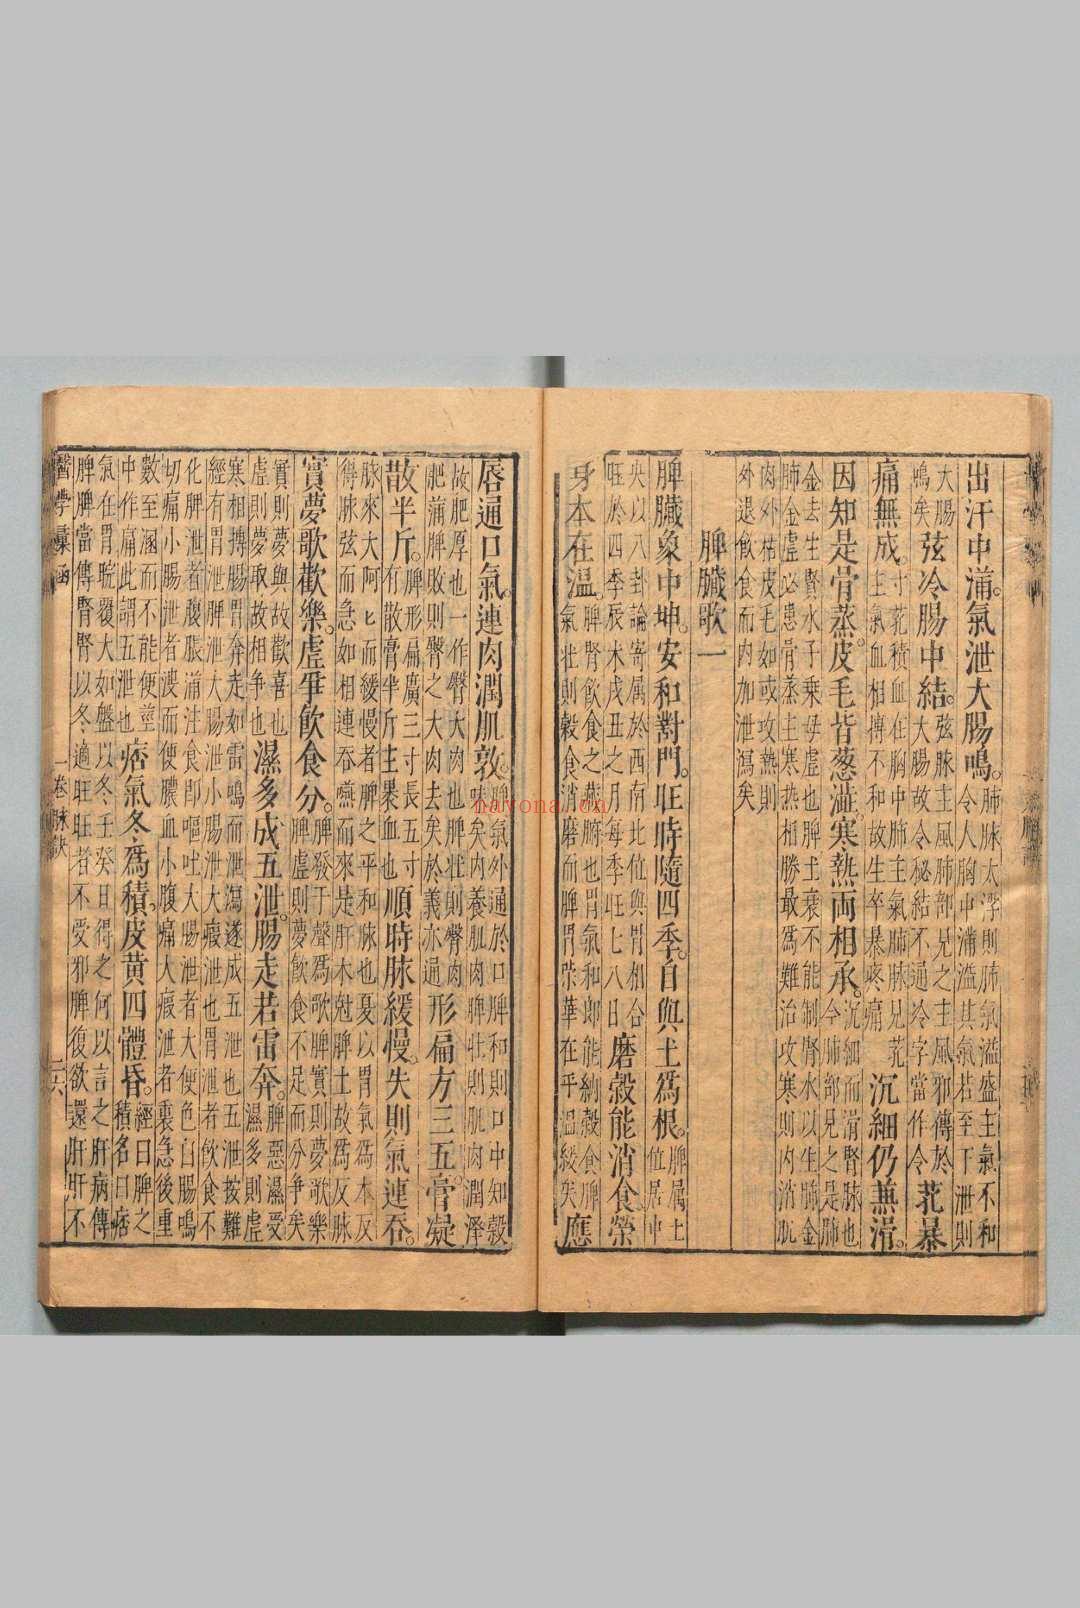 出汗中滿。氣泄大腸鳴。肺脉太浮則肺氣溢盛主氣不和
令人胸中滿溢其氣若至下泄則
大腸鳴矣弦冷腸中結。弦脉主風肺部見之主風邪傳於
大腸故令秘結不通冷字當作令芤暴
痛無成。寸芤積血在胸中肺主氣肺脉見芤
主氣血相摶不和故生卒暴疼痛沉細仍兼滑。
因知是骨蒸。皮毛皆葱澁。寒熱兩相承。沉細而滑腎脉也
今肺部見之是肺
金去生腎水子乘母虛也脾土衰不能制腎水以生肺金
肺金虛必患骨蒸主寒熱相勝最爲難治攻寒則内消肌
肉外枯皮毛如或攻熱則
外退飲食而内加泄瀉矣
脾臟歌一
脾臟象中坤。安和對門。旺時隨四季。自與土爲根。脾属土
位居中
央以八卦論寄属於西南坤位與胃相合
旺於四季辰未戌丑之月每季旺七八日磨穀能消食。榮
身本在温。脾腎飲食之府也胃氣和即能納穀食脾
氣壯則穀食消磨而脾胃榮華在乎温緩矣應
唇通口氣。連肉潤肌敦。脾氣外通於口脾和則口中知穀
味矣内養肌肉脾壯則肌肉潤澤
故肥厚也一作臀大肉也脾壯則臀肉
肥滿脾敗則臀之大肉去矣於義亦通形扁方三五。膏凝
散半斤。脾形扁廣三寸長五寸
有散膏半斤主裹血也順時脉緩慢。失則氣連吞。
脉來大阿阿而緩慢者脾之平和脉也憂以胃氣爲本反
得脉弦而急如相連吞嚥而來是肝木尅脾土故爲反脉
實夢歌歡樂。虛爭飲食分。脾發于聲爲歌脾實則夢歌樂
脾虛則夢飲食不足而分争矣
實則夢與故歡喜也
虛則夢取故相争也濕多成五泄。腸走若雷奔。脾惡濕受
濕多則虛
寒相摶腸胃奔走如雷鳴而泄瀉遂成五泄也五泄按難
經有胃泄脾泄大腸泄小腸泄大瘕泄也胃泄者飲食不
化脾泄者腹脹滿注食即嘔吐大腸泄者大便色白腸鳴
切痛小腸泄者溲而便膿血小腹痛大瘕泄者裏急後重
數至溷而不能便莖
中作痛此謂五泄也痞氣冬爲積。皮黃四體昏。經曰脾之
積名曰痞
氣在胃脘覆大如盤以冬壬癸日得之何以言之肝病傳
脾脾當傳腎腎以冬適旺旺者不受邪脾復欲還肝肝不
醫學彙函
一卷 脉訣
二六
nayona.cn